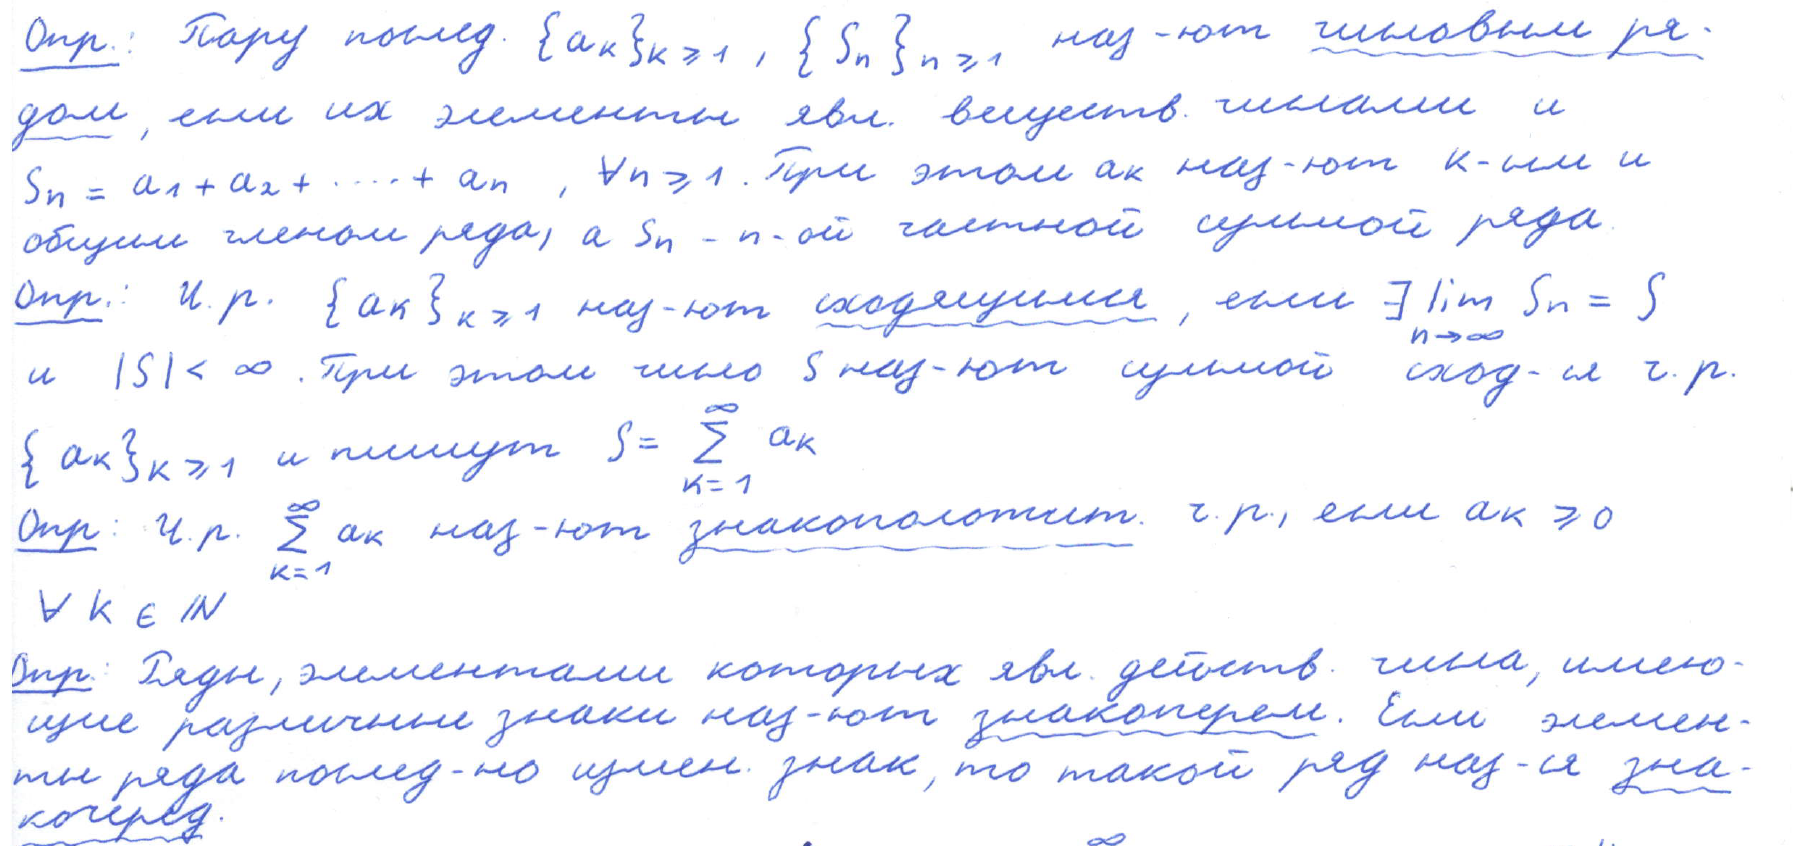 Опр.: Пару послед. {aк}к⩾1, {Sn}n⩾1 наз-ют числовым ря-
дом, если их элементы явл. веществ. числами и
Sn = a1 + a2 + ..... + an, ∀n⩾1. При этом aк наз-ют к-ым и
общим членом ряда, а Sn - n-ой частной суммой ряда.
Опр.: Ч.р. {aк}к⩾1 наз-ют сходящимся, если ∃ lim n→∞ Sn = S
и |S| < ∞. При этом число S наз-ют суммой сход-ся ч.р.
{aк}к⩾1 и пишут S = ∞ Σ к=1 aк
Опр: Ч.р. ∞ Σ к=1 aк наз-ют знакоположит. ч.р., если aк ⩾ 0
∀ к ∈ ℕ
Опр: Ряды, элементами которых явл. действ. числа, имею-
щие различные знаки наз-ют знакоперем. Если элемен-
ты ряда послед-но измен. знак, то такой ряд наз-ся зна-
кочеред.
∞